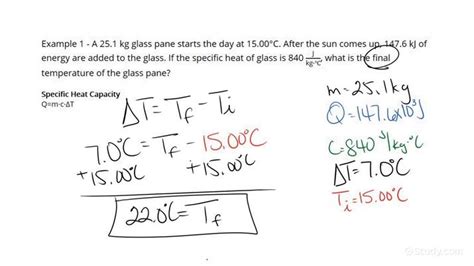 Example 1 - A 25.1 kg glass pane starts the day at 15.00°C. After the sun comes up, 147.6 kJ of
energy are added to the glass. If the specific heat of glass is 840 J/kg·°C, what is the final
temperature of the glass pane?
Specific Heat Capacity
Q=m·c·ΔT
ΔT = Tf - Ti
7.0°C = Tf - 15.00°C
+15.00°C +15.00°C
22.0°C = Tf
m = 25.1kg
Q = 147.6x10³J
C = 840 J/kg·°C
ΔT = 7.0°C
Ti = 15.00°C
Study.com